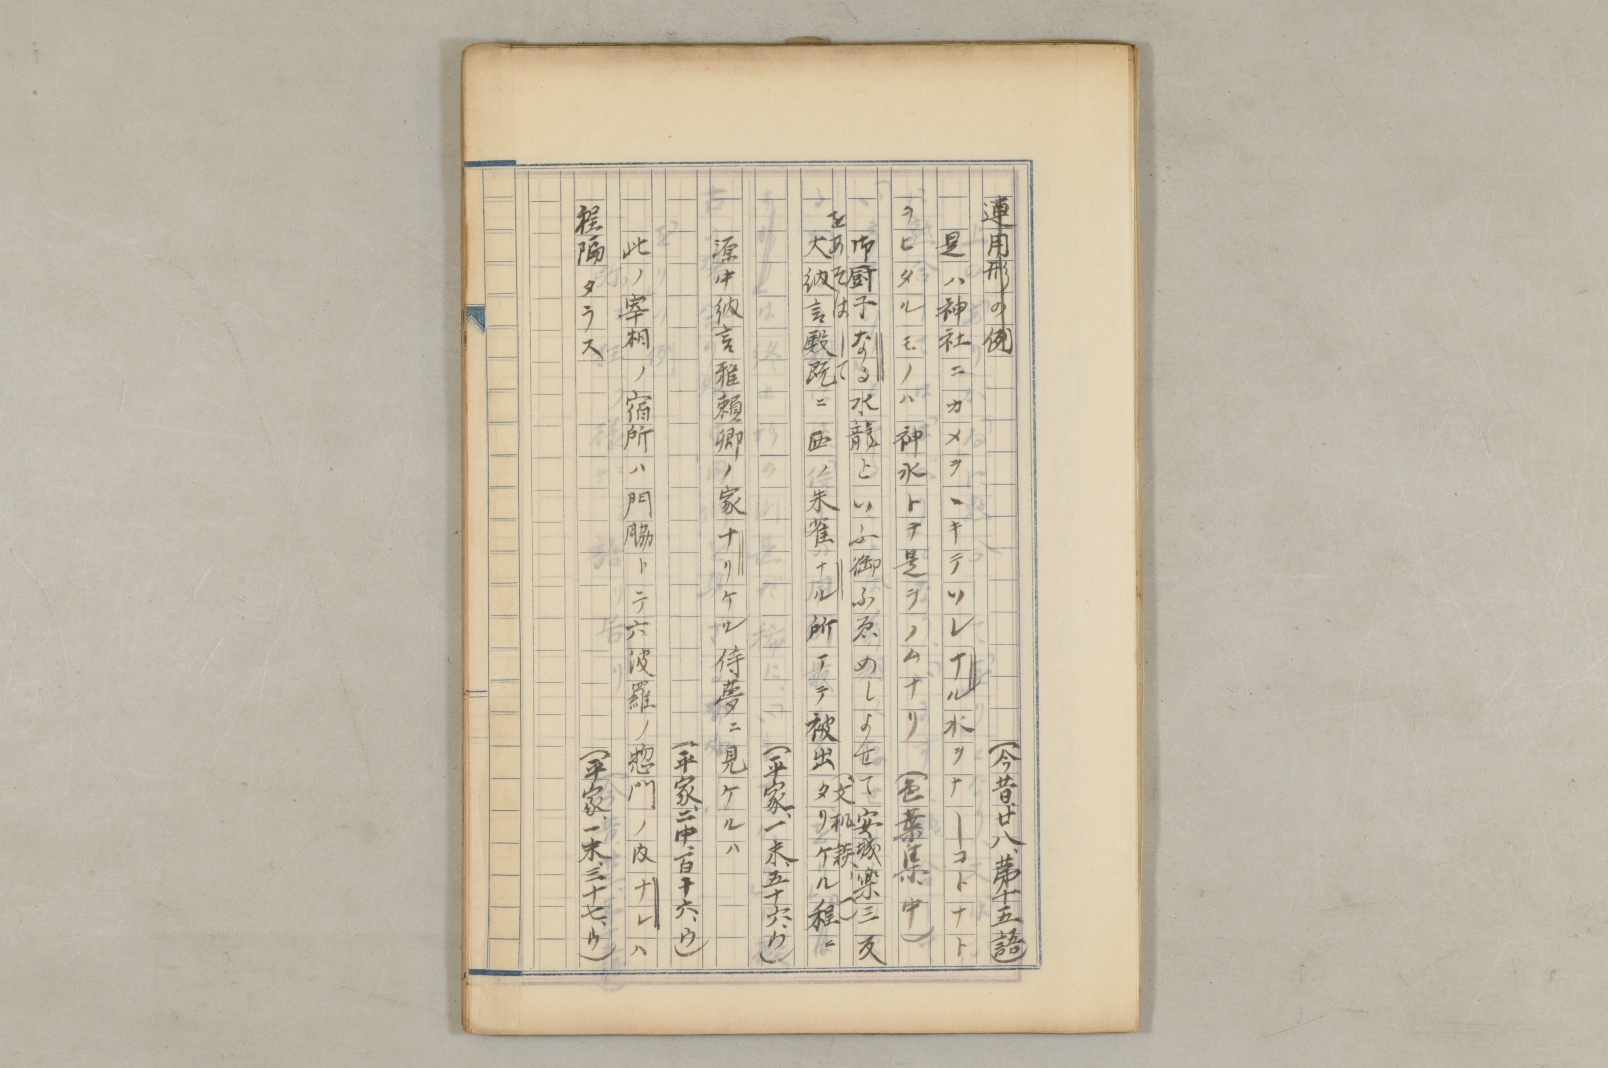 連用形の例
（今昔、廿八、第十五語）
是ハ神社ニカメヲヽキテソレナル水ヲナーコトナト
ヲヒタルモノハ神水トヲ是ヲノムナリ　（色葉集、中）
御厨子なる水龍といふ御ふゑめしよせて安城楽三反
をあそはして　（文机談、）
大納言殿既ニ西ノ朱雀ナル所マテ被出タリケル程ニ
（平家、一末、五十六、ウ）
源中納言雅頼卿ノ家ナリケル侍夢ニ見ケルハ
（平家、二中、百十六、ウ）
此ノ宰相ノ宿所ハ門脇トテ六波羅ノ惣門ノ内ナレハ
程隔タラス　（平家、一末、三十七、ウ）